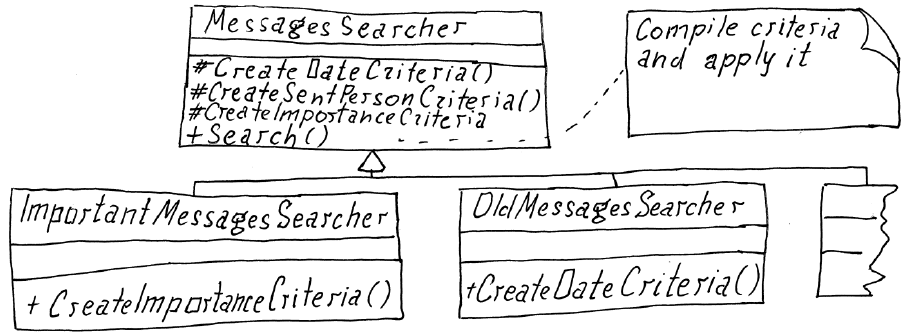 Messages Searcher
#CreateDateCriteria()
#CreateSentPersonCriteria()
#CreateImportanceCriteria
+Search()
Compile criteria
and apply it
ImportantMessagesSearcher
+ CreateImportanceCriteria()
OldMessagesSearcher
+CreateDateCriteria()